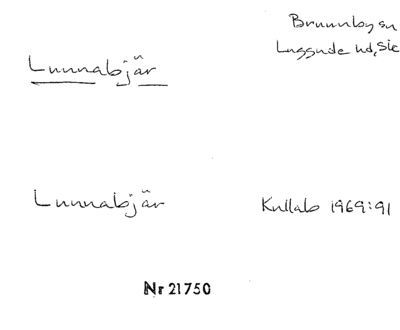 Brunnby sn
Luggude hd, Sk
Lunnabjär
Lunnabjär
Kullab 1969:91
Nr 21750